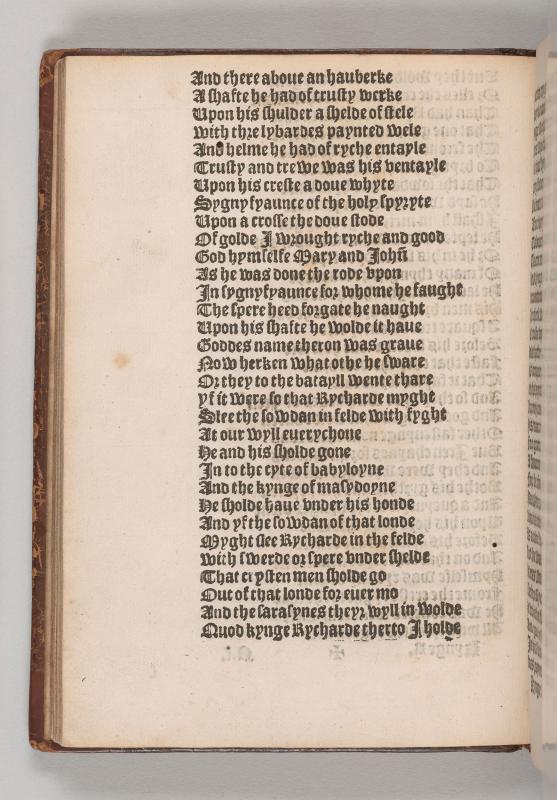 And there aboue an hauberke
A shafte he had of trusty werke
Upon his shulder a shelde of stele
with thre lybardes paynted wele
And helme he had of ryche entayle
Trusty and trewe was his ventayle
Upon his creste a doue whyte
Sygnyfyaunce of the holy spyryte
Upon a crosse the doue stode
Of golde I wrought ryche and good
God hymselfe Mary and Johñ
As he was done the rode vpon
In sygnyfyaunce for whome he faught
The spere heed forgate he naught
Upon his shafte he wolde it haue
Goddes name theron was graue
Now herken what othe he sware
Or they to the batayll wente thare
yf it were so that Rycharde myght
Slee the sowdan in felde with fyght
At our wyll euerychone
He and his sholde gone
In to the cyte of babyloyne
And the kynge of masydoyne
He sholde haue vnder his honde
And yf the sowdan of that londe
Myght slee Rycharde in the felde
with swerde or spere vnder shelde
That crysten men sholde go
Out of that londe for euer mo
And the sarasynes theyr wyll in wolde
Quod kynge Rycharde therto I holde